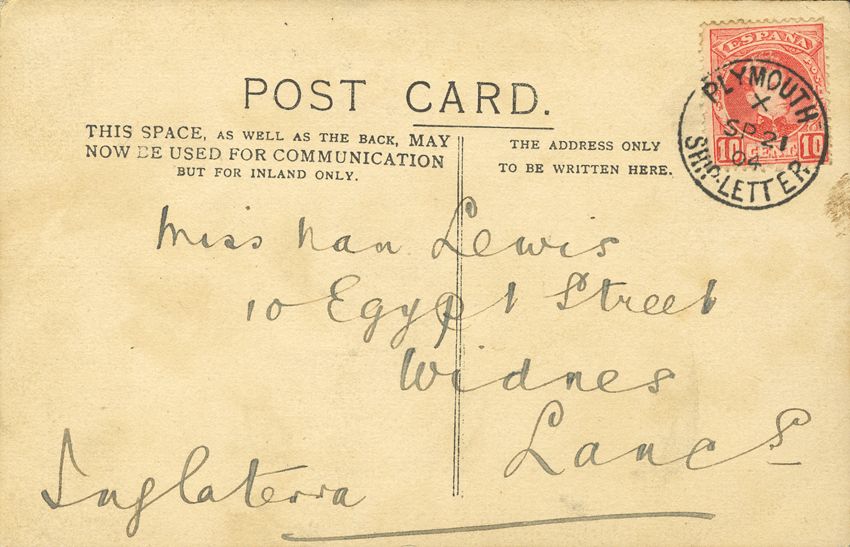 POST CARD.
THIS SPACE, AS WELL AS THE BACK, MAY
NOW BE USED FOR COMMUNICATION
BUT FOR INLAND ONLY.
THE ADDRESS ONLY
TO BE WRITTEN HERE.
ESPAÑA
10 CENT. 10
PLYMOUTH
X
SP 21
04
SHIP-LETTER
Miss Nan Lewis
10 Egypt Street
Widnes
Lancs
Inglaterra